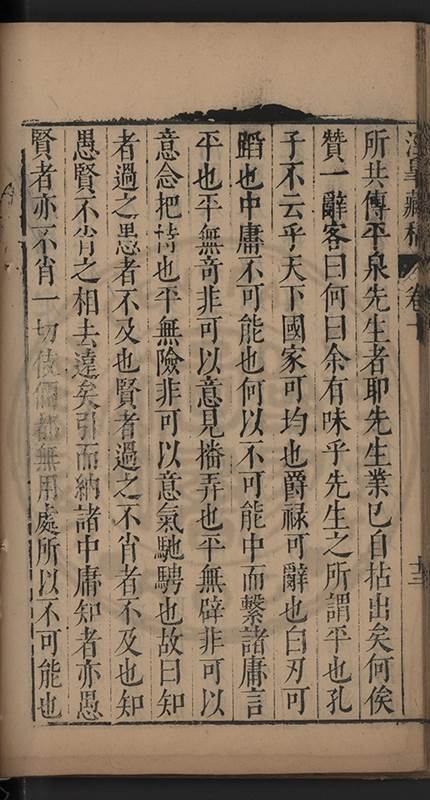 涇皋藏稿 卷十 十三
所共傳平泉先生者耶先生業已自拈出矣何俟
贊一辭客曰何曰余有味乎先生之所謂平也孔
子不云乎天下國家可均也爵祿可辭也白刃可
蹈也中庸不可能也何以不可能中而繫諸庸言
平也平無竒非可以意見播弄也平無僻非可以
意念把持也平無險非可以意氣馳騁也故曰知
者過之愚者不及也賢者過之不肖者不及也知
愚賢不肖之相去遠矣引而納諸中庸知者亦愚
賢者亦不肖一切伎倆都無用處所以不可能也